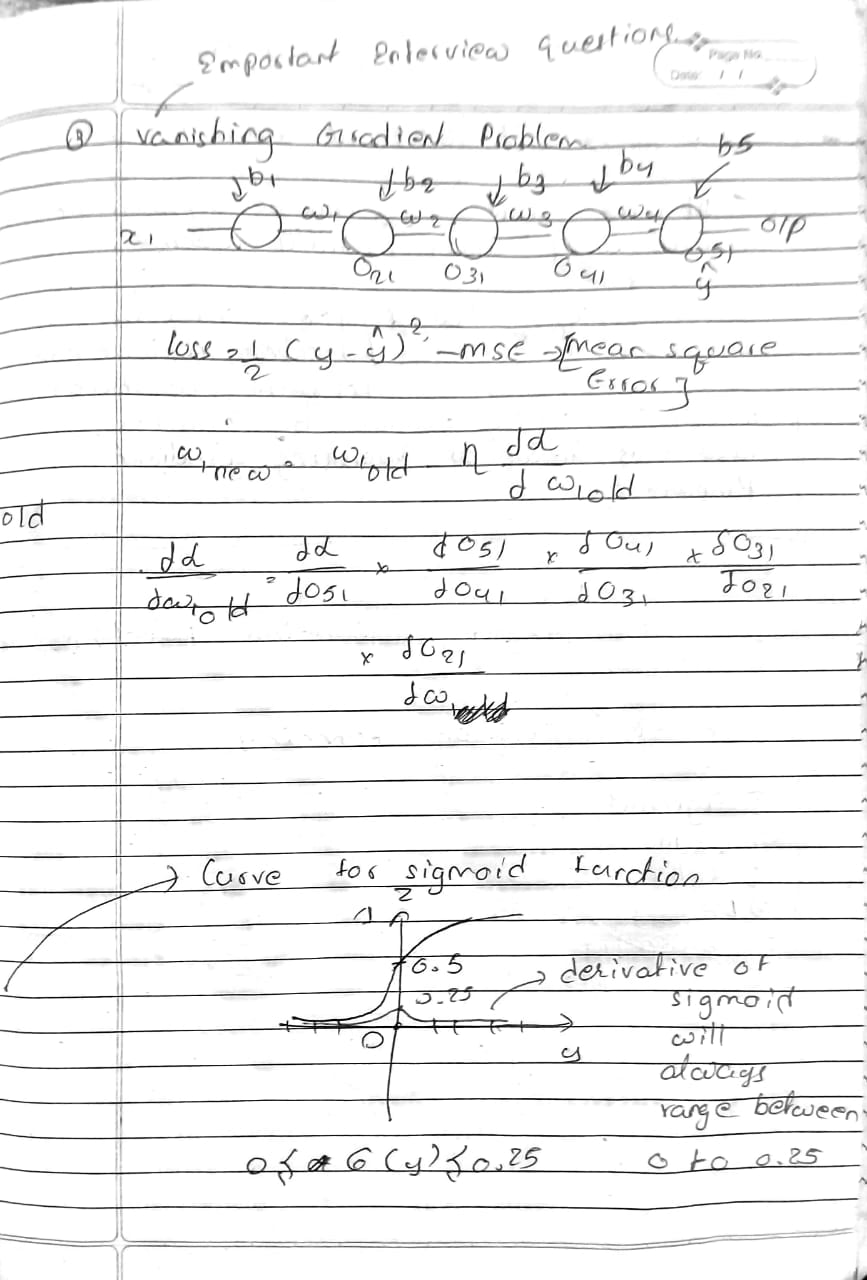 Emportant Enterview questions
Page No.
Date: / /
③ Vanishing Gradient Problem
b1 b2 b3 b4 b5
x1 ω1 ω2 ω3 ω4 o/p
O21 O31 O41 O51
ŷ
loss = 1/2 (y - ŷ)² - MSE → [mean square
Error]
ω1new = ω1old η dd/dω1old
old
dd/dω1old = dd/dO51 × dO51/dO41 × dO41/dO31 × dO31/dO21
× dO21/dω1
→ Curve for sigmoid function
z
1
0.5
→ derivative of
0.25
sigmoid
0
y
will
always
range between
0 ≤ σ(y) ≤ 0.25
0 to 0.25